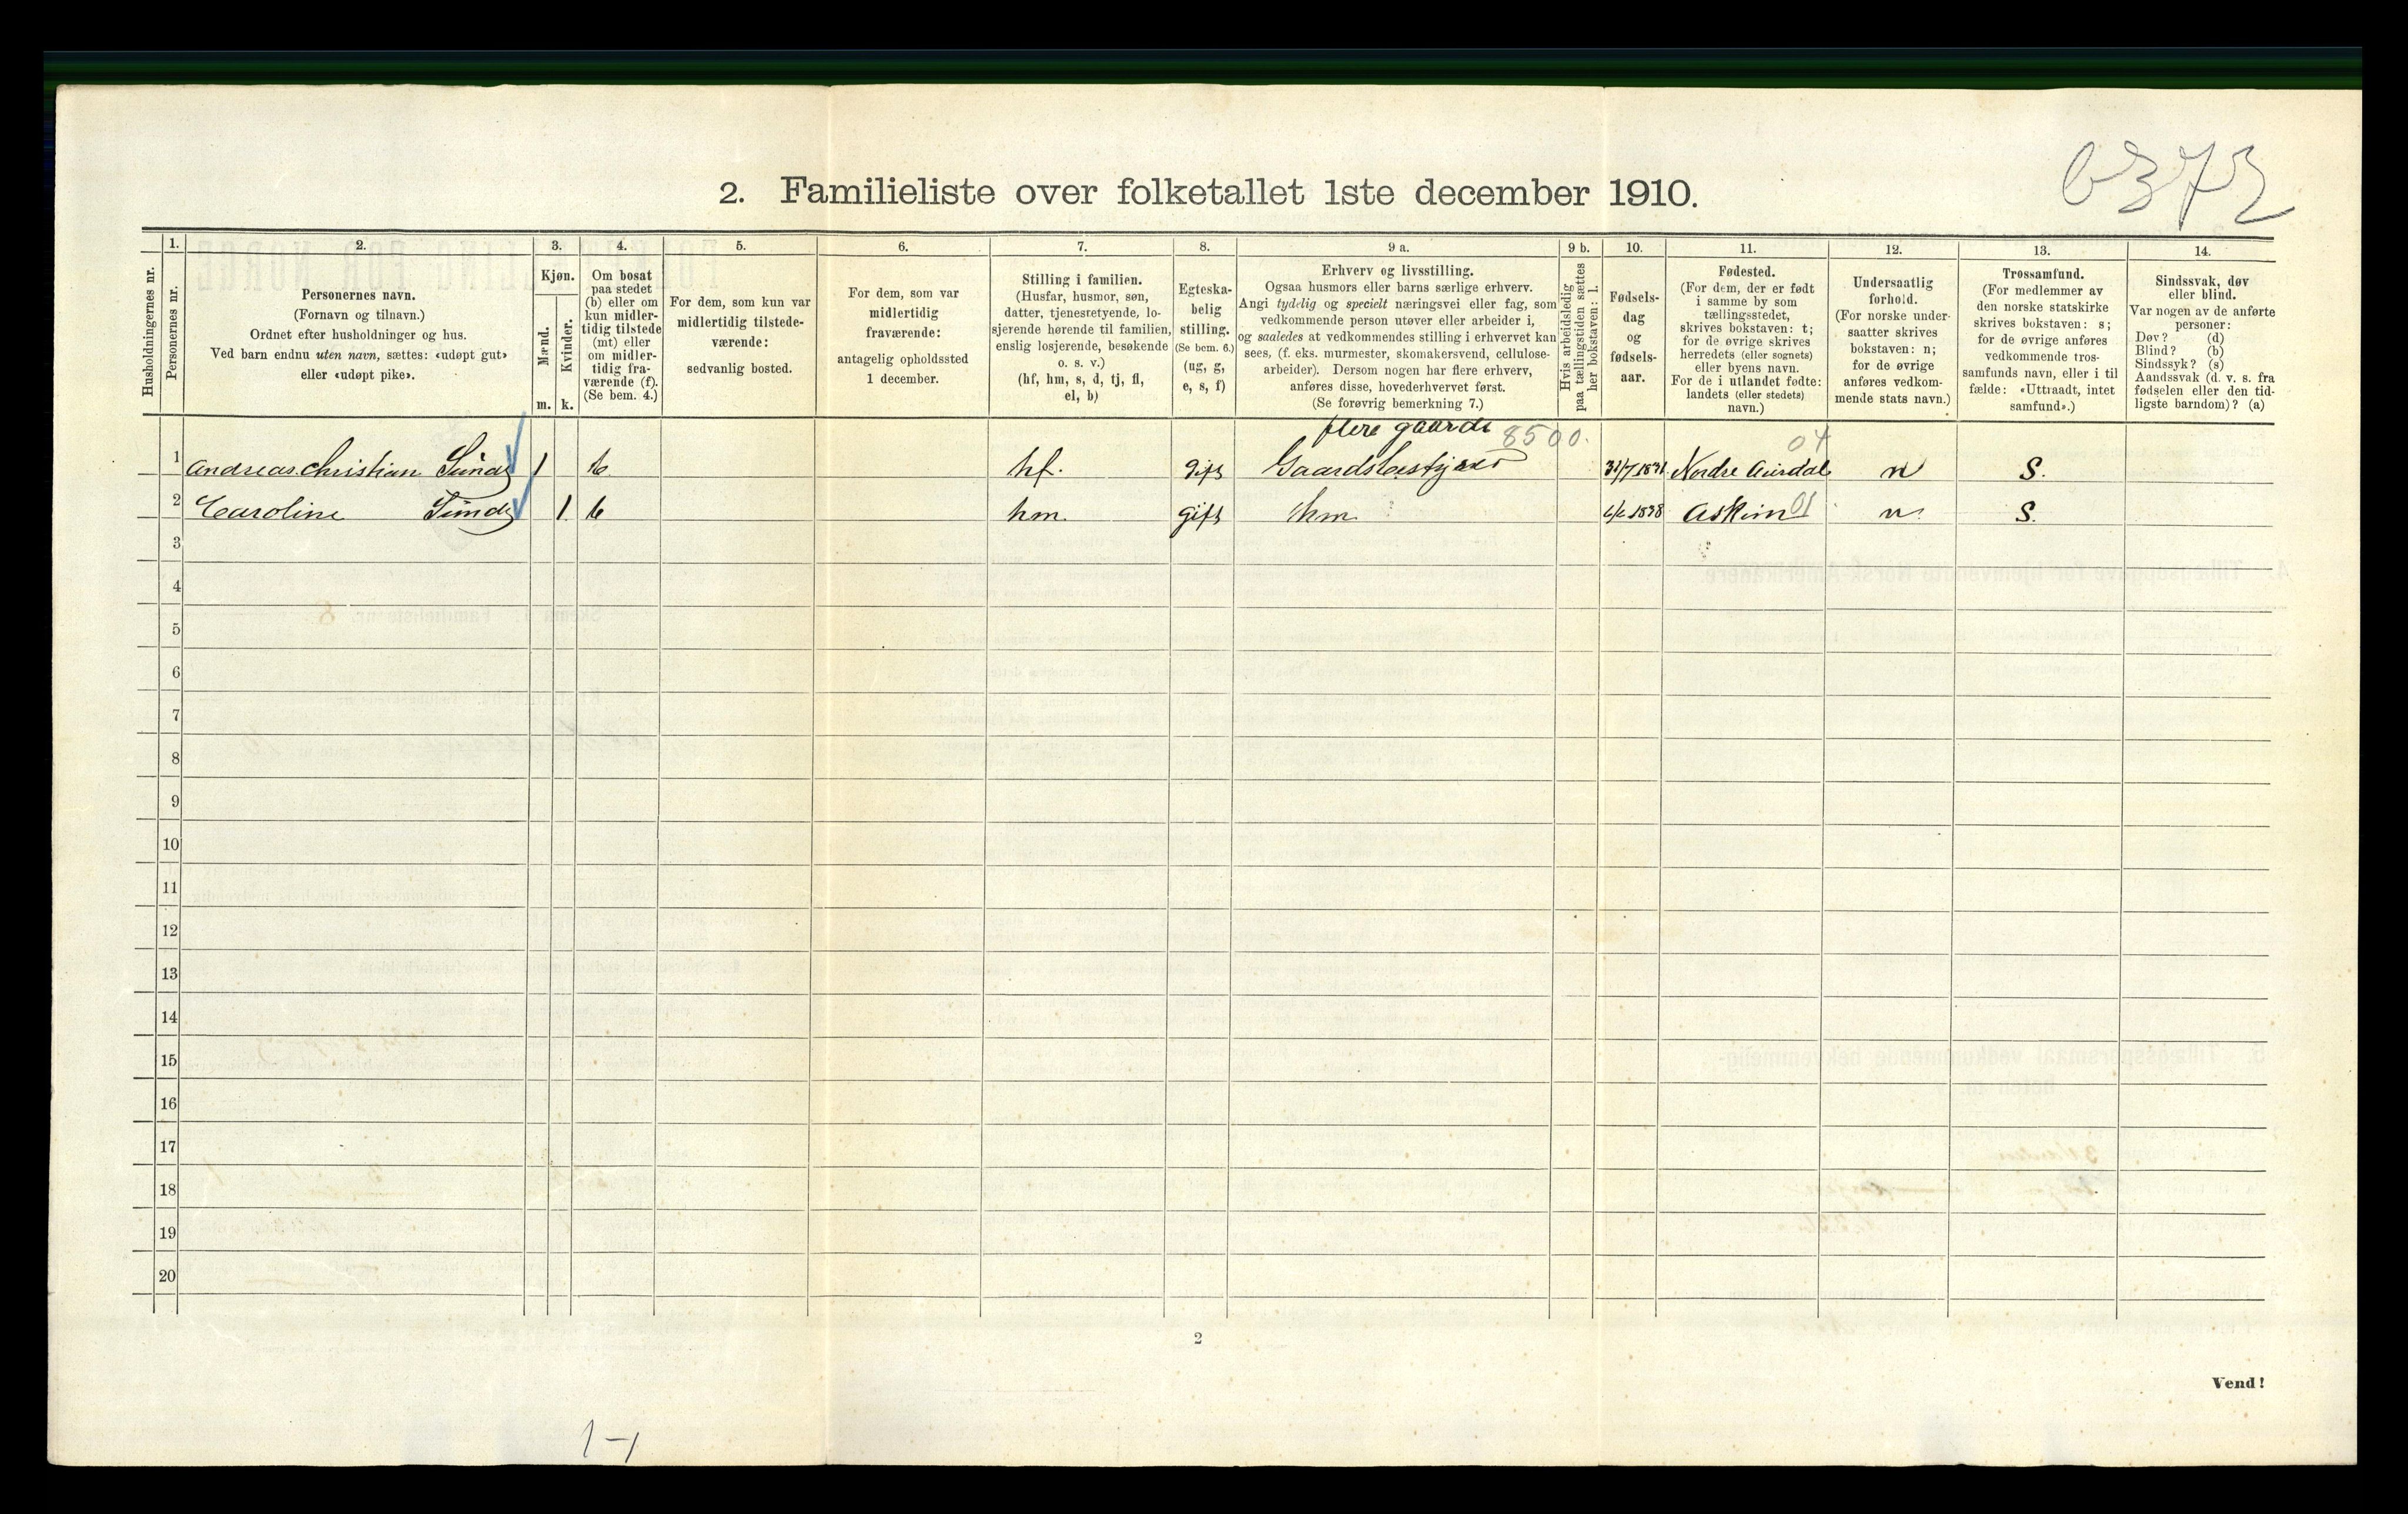 6372
2. Familieliste over folketallet 1ste december 1910.
Husholdningernes nr.
1.
Personernes nr.
2.
Personernes navn.
(Fornavn og tilnavn.)
Ordnet efter husholdninger og hus.
Ved barn endnu uten navn, sættes: «udøpt gut»
eller «udøpt pike».
3.
Kjøn.
Mænd.
Kvinder.
m. k.
4.
Om bosat
paa stedet
(b) eller om
kun midler-
tidig tilstede
(mt) eller
om midler-
tidig fra-
værende (f).
(Se bem. 4.)
5.
For dem, som kun var
midlertidig tilstede-
værende:
sedvanlig bosted.
6.
For dem, som var
midlertidig
fraværende:
antagelig opholdssted
1 december.
7.
Stilling i familien.
(Husfar, husmor, søn,
datter, tjenestetyende, lo-
sjerende hørende til familien,
enslig losjerende, besøkende
o. s. v.)
(hf, hm, s, d, tj, fl,
el, b)
8.
Egteska-
belig
stilling.
(Se bem. 6.)
(ug, g,
e, s, f)
9 a.
Erhverv og livsstilling.
Ogsaa husmors eller barns særlige erhverv.
Angi tydelig og specielt næringsvei eller fag, som
vedkommende person utøver eller arbeider i,
og saaledes at vedkommendes stilling i erhvervet kan
sees, (f. eks. murmester, skomakersvend, cellulose-
arbeider). Dersom nogen har flere erhverv,
anføres disse, hovederhvervet først.
(Se forøvrig bemerkning 7.)
9 b.
Hvis arbeidsledig
paa tællingstiden sættes
her bokstaven: l.
10.
Fødsels-
dag
og
fødsels-
aar.
11.
Fødested.
(For dem, der er født
i samme by som
tællingsstedet,
skrives bokstaven: t;
for de øvrige skrives
herredets (eller sognets)
eller byens navn.
For de i utlandet fødte:
landets (eller stedets)
navn.)
12.
Undersaatlig
forhold.
(For norske under-
saatter skrives
bokstaven: n;
for de øvrige
anføres vedkom-
mende stats navn.)
13.
Trossamfund.
(For medlemmer av
den norske statskirke
skrives bokstaven: s;
for de øvrige anføres
vedkommende tros-
samfunds navn, eller i til
fælde: «Uttraadt, intet
samfund».)
14.
Sindssvak, døv
eller blind.
Var nogen av de anførte
personer:
Døv? (d)
Blind? (b)
Sindssyk? (s)
Aandssvak (d. v. s. fra
fødselen eller den tid-
ligste barndom)? (a)
flere gaarde 8500. 04
1 Andreas. Christian Sunde 1 b hf. gift Gaardsbestyrer Nordre Aurdal n S.
2 Caroline Sunde 1 b hm. gift hm 1838 Askim 01 n. S.
3
4
5
6
7
8
9
10
11
12
13
14
15
16
17
18
19
20
2
Vend!
1-1